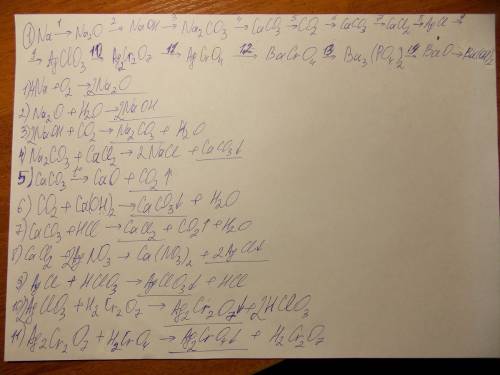 ① Na →¹ Na₂O →² NaOH →³ Na₂CO₃ →⁴ CaCO₃ →⁵ CO₂ →⁶ CaCO₃ →⁷ CaCl₂ → AgCl →⁹
→⁹ AgClO₃ →¹⁰ Ag₂Cr₂O₇ →¹¹ AgCrO₄ →¹² BaCrO₄ →¹³ Ba₃(PO₄)₂ →¹⁴ BaO → Ba(OH)₂
1) 4Na + O₂ → 2Na₂O
2) Na₂O + H₂O → 2NaOH
3) 2NaOH + CO₂ → Na₂CO₃ + H₂O
4) Na₂CO₃ + CaCl₂ → 2NaCl + CaCO₃↓
5) CaCO₃ →t° CaO + CO₂↑
6) CO₂ + Ca(OH)₂ → CaCO₃↓ + H₂O
7) CaCO₃ + HCl → CaCl₂ + CO₂↑ + H₂O
8) CaCl₂ + 2AgNO₃ → Ca(NO₃)₂ + 2AgCl↓
9) AgCl + HClO₃ → AgClO₃↓ + HCl
10) 2AgClO₃ + H₂Cr₂O₇ → Ag₂Cr₂O₇↓ + 2HClO₃
11) Ag₂Cr₂O₇ + H₂CrO₄ → Ag₂CrO₄↓ + H₂Cr₂O₇